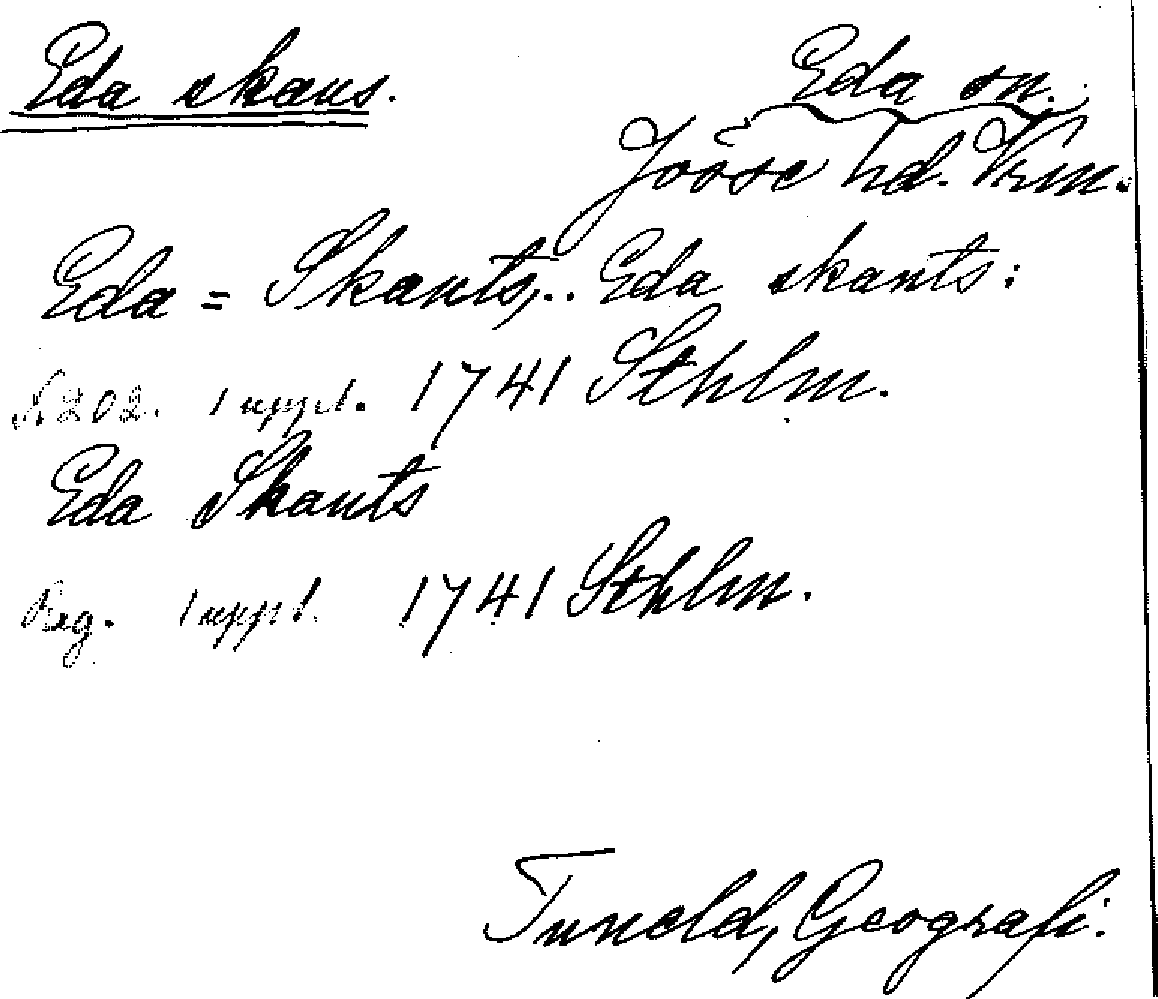 Eda skans.
Eda sn.
Jösse hd. Vrm.
Eda = Skants, .. Eda skants:
S 202. 1 uppl. 1741 Sthlm.
Eda Skants
Reg. 1 uppl. 1741 Sthlm.
Tuneld, Geografi.